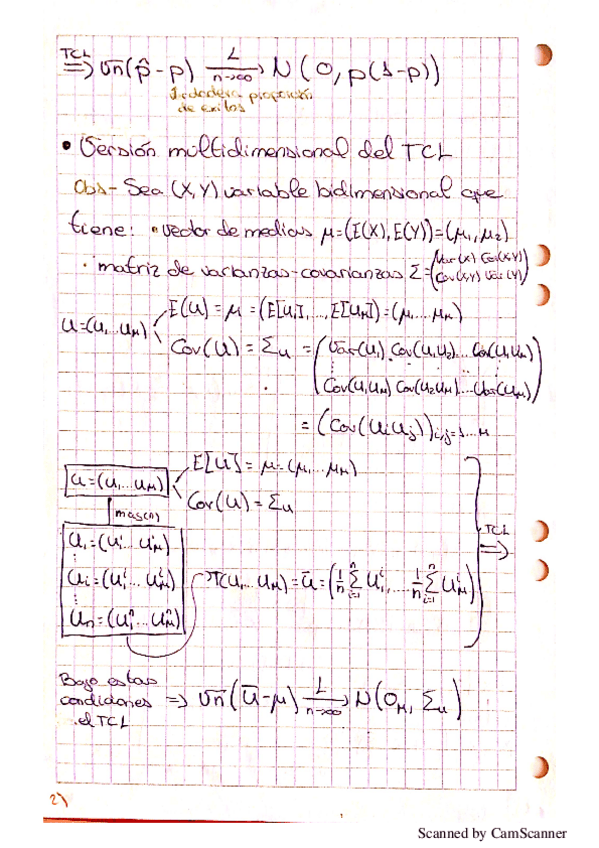 TCL
⇒ √n(p̂-p) L/n→∞→ N(0, p(1-p))
verdadera proporción
de éxitos
• Versión multidimensional del TCL
Obs- Sea (X,Y) variable bidimensional que
tiene: • vector de medias μ=(E(X),E(Y))=(μ₁,μ₂)
• matriz de varianzas-covarianzas Σ=(Var(X) Cov(X,Y)
Cov(X,Y) Var(Y))
E(U) = μ = (E[U₁],...,E[U_M]) = (μ₁...μ_M)
U=(U₁...U_M)
Cov(U) = Σᵤ = (Var(U₁) Cov(U₁U₂)... Cov(U₁U_M)
⋮
Cov(U₁U_M) Cov(U₂U_M)... Var(U_M))
= (Cov(UᵢUⱼ))ᵢ,ⱼ₌₁...M
E[U] = μ = (μ₁...μ_M)
U=(U₁...U_M)
Cov(U) = Σᵤ
mas(n)
TCL
⇒
U₁=(U₁¹...U_M¹)
⋮
Uᵢ=(U₁ⁱ...U_Mⁱ) T(U₁...U_M) = Ū = (1/n Σᵢ₌₁ⁿ U₁ⁱ,....,1/n Σᵢ₌₁ⁿ U_Mⁱ)
⋮
Uₙ=(U₁ⁿ...U_Mⁿ)
Bajo estas
condiciones ⇒ √n(Ū-μ) L/n→∞→ N(0_M, Σᵤ)
el TCL
2)
Scanned by CamScanner